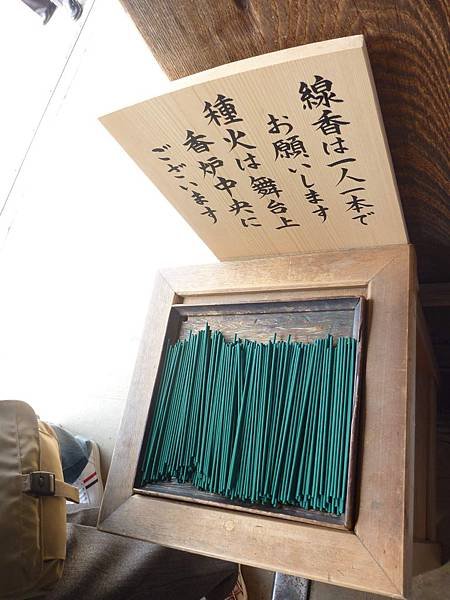 線香は一人一本で
お願いします
種火は舞台上
香炉中央に
ございます